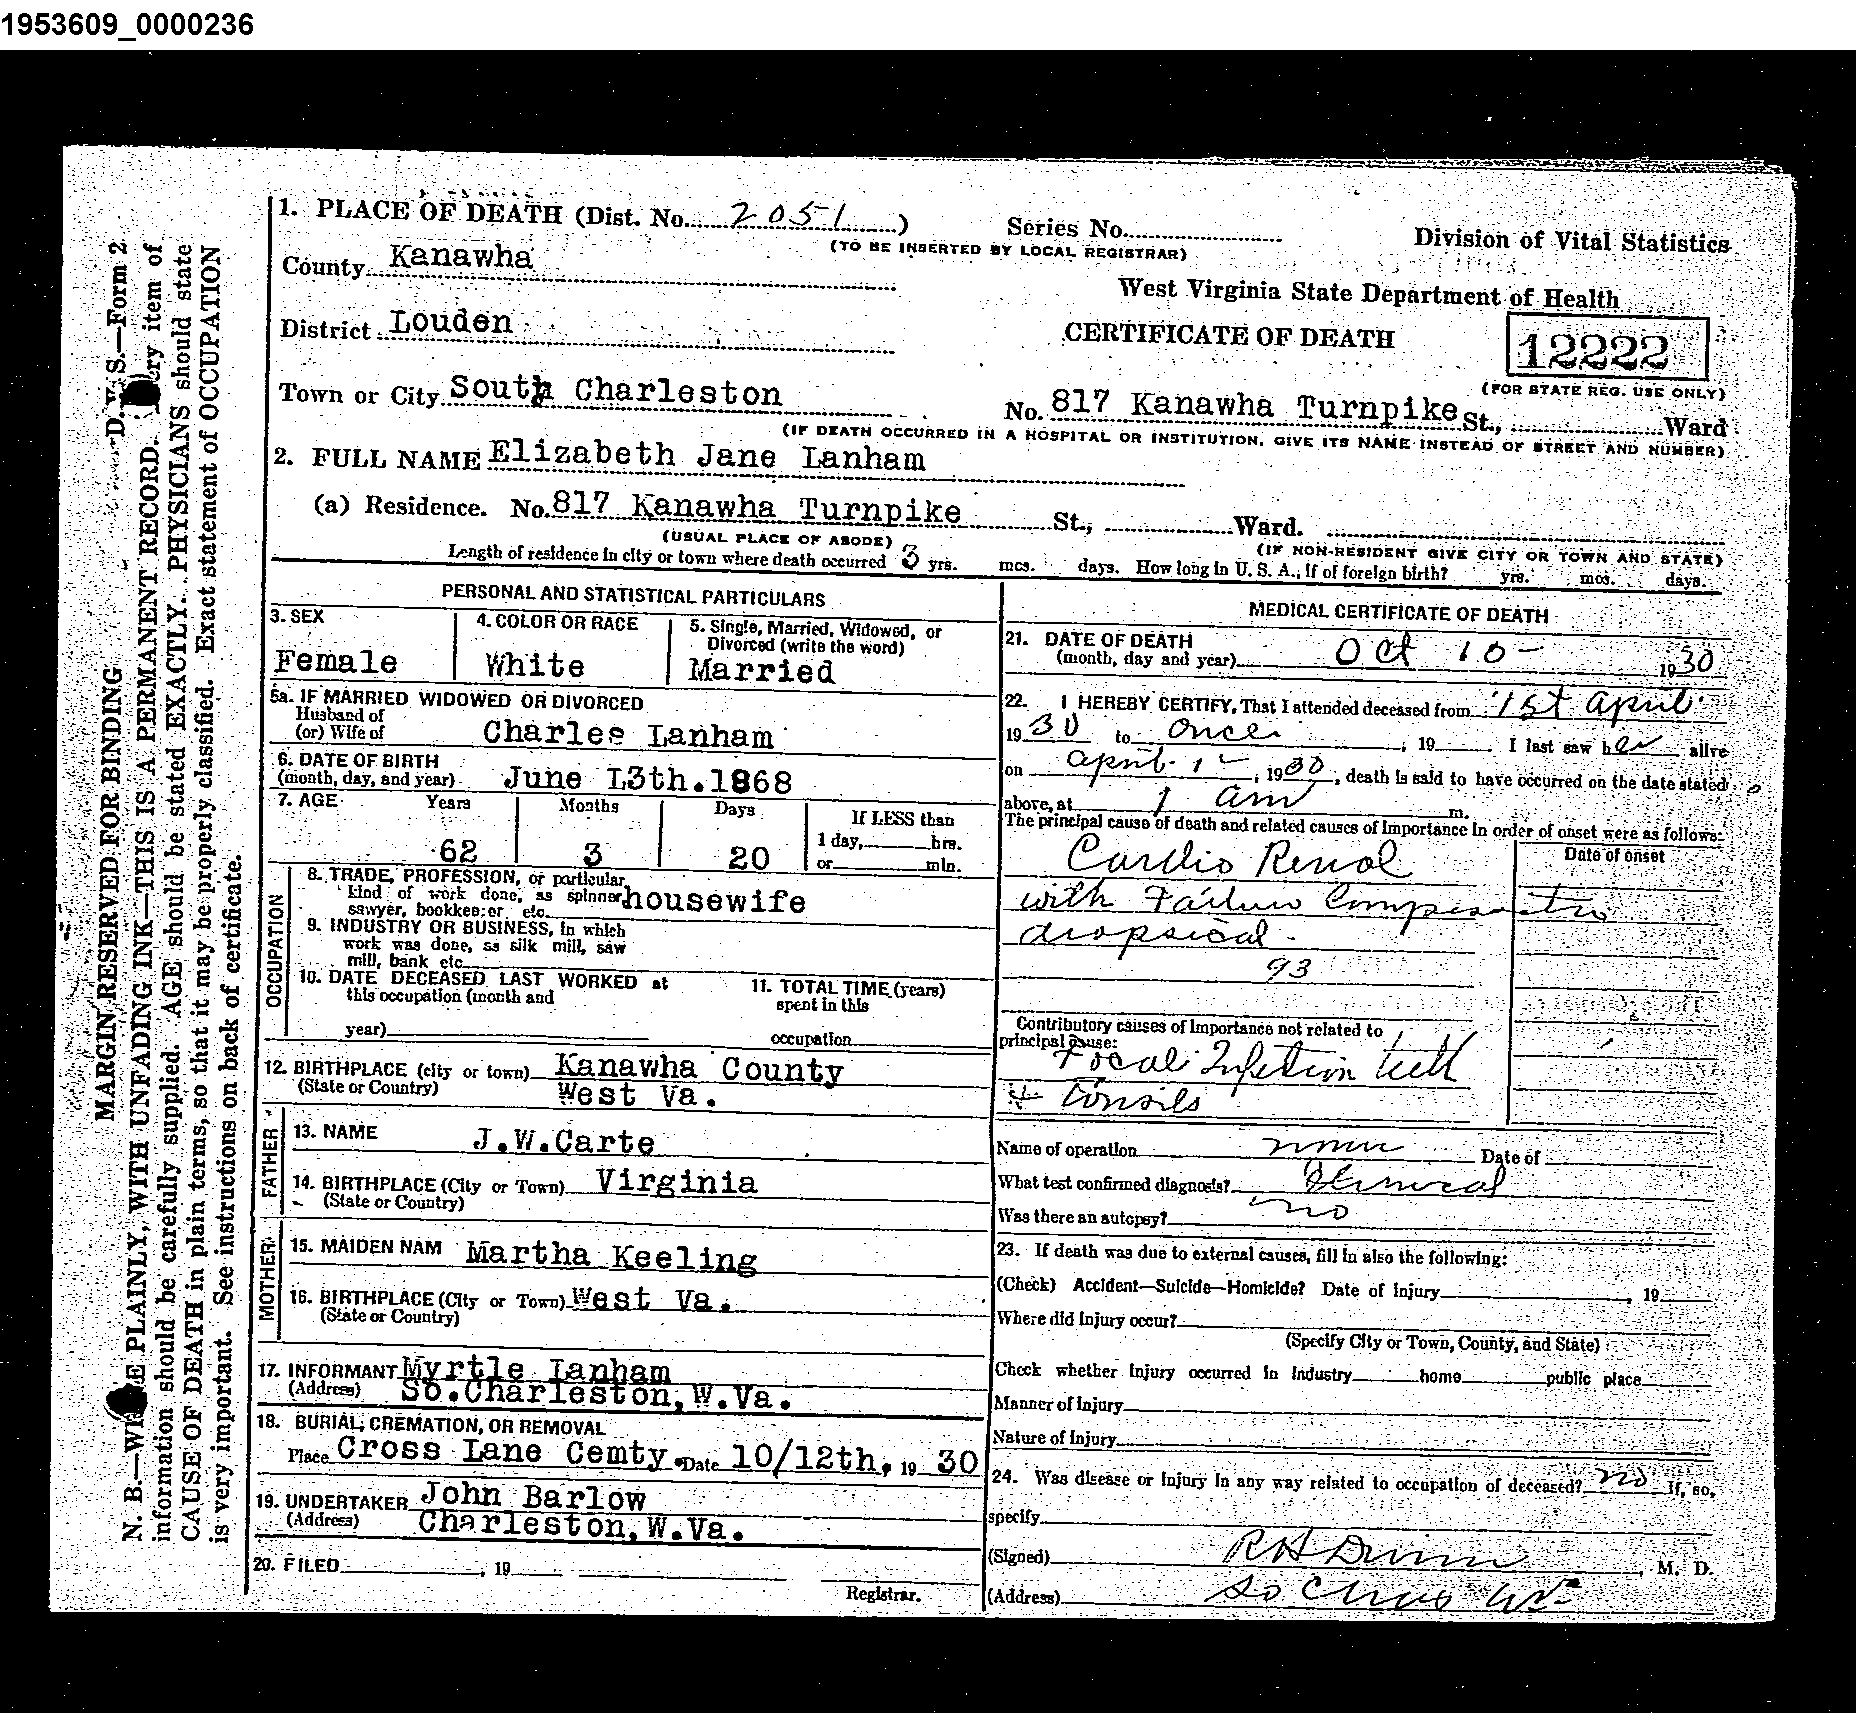 1953609_0000236
D. V. S.—Form 2
MARGIN RESERVED FOR BINDING
N. B.—WRITE PLAINLY, WITH UNFADING INK—THIS IS A PERMANENT RECORD. Every item of
information should be carefully supplied. AGE should be stated EXACTLY. PHYSICIANS should state
CAUSE OF DEATH in plain terms, so that it may be properly classified. Exact statement of OCCUPATION
is very important. See instructions on back of certificate.
1. PLACE OF DEATH (Dist. No. 2051)
Series No.
(TO BE INSERTED BY LOCAL REGISTRAR)
Division of Vital Statistics
County Kanawha
West Virginia State Department of Health
District Louden
CERTIFICATE OF DEATH
12222
(FOR STATE REG. USE ONLY)
Town or City South Charleston
No. 817 Kanawha Turnpike St., Ward
(IF DEATH OCCURRED IN A HOSPITAL OR INSTITUTION, GIVE ITS NAME INSTEAD OF STREET AND NUMBER)
2. FULL NAME Elizabeth Jane Lanham
(a) Residence. No. 817 Kanawha Turnpike St., Ward.
(USUAL PLACE OF ABODE)
(IF NON-RESIDENT GIVE CITY OR TOWN AND STATE)
Length of residence in city or town where death occurred 3 yrs. mos. days. How long in U. S. A., if of foreign birth? yrs. mos. days.
PERSONAL AND STATISTICAL PARTICULARS
3. SEX
Female
4. COLOR OR RACE
White
5. Single, Married, Widowed, or
Divorced (write the word)
Married
5a. IF MARRIED WIDOWED OR DIVORCED
Husband of
(or) Wife of Charles Lanham
6. DATE OF BIRTH
(month, day, and year) June 13th.1868
7. AGE Years Months Days
If LESS than
1 day, hrs.
or min.
62 3 20
OCCUPATION
8. TRADE, PROFESSION, or particular
kind of work done, as spinner
sawyer, bookkeeper, etc. housewife
9. INDUSTRY OR BUSINESS, in which
work was done, as silk mill, saw
mill, bank etc.
10. DATE DECEASED LAST WORKED at
this occupation (month and
year)
11. TOTAL TIME (years)
spent in this
occupation
12. BIRTHPLACE (city or town) Kanawha County
(State or Country) West Va.
FATHER
13. NAME J.W.Carte
14. BIRTHPLACE (City or Town) Virginia
(State or Country)
MOTHER
15. MAIDEN NAM Martha Keeling
16. BIRTHPLACE (City or Town) West Va.
(State or Country)
17. INFORMANT Myrtle Lanham
(Address) So.Charleston, W.Va.
18. BURIAL, CREMATION, OR REMOVAL
Place Cross Lane Cemty. Date 10/12th, 19 30
19. UNDERTAKER John Barlow
(Address) Charleston, W.Va.
20. FILED , 19
Registrar.
MEDICAL CERTIFICATE OF DEATH
21. DATE OF DEATH
(month, day and year) Oct 10- 1930
22. I HEREBY CERTIFY, That I attended deceased from 1st April
1930 to once , 19 . I last saw her alive
on April 1- , 1930, death is said to have occurred on the date stated
above, at 1 am m.
The principal cause of death and related causes of importance in order of onset were as follows:
Date of onset
Cardio Renal
with Failure
dropsical
93
Contributory causes of importance not related to
principal cause:
Focal Infection teeth
& Tonsils
Name of operation none Date of
What test confirmed diagnosis?
Was there an autopsy? no
23. If death was due to external causes, fill in also the following:
(Check) Accident—Suicide—Homicide? Date of Injury , 19
Where did Injury occur?
(Specify City or Town, County, and State)
Check whether Injury occurred in Industry home public place
Manner of Injury
Nature of Injury
24. Was disease or Injury in any way related to occupation of deceased? no If, so,
specify
(Signed) , M. D.
(Address) So